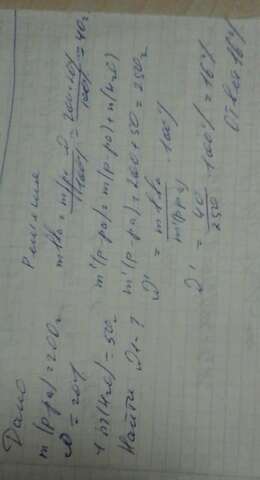 Дано
m(р-ра)=200г
ω=20%
+m(H2O)=50г
Найти ω1-?
Решение
mв-ва=m(р-ра)·ω/100%=200·20%/100%=40г
m'(р-ра)=m(р-ра)+m(H2O)
m'(р-ра)=200+50=250г
ω'=mв-ва/m'(р-ра)·100%
ω'=40/250·100%=16%
Ответ 16%